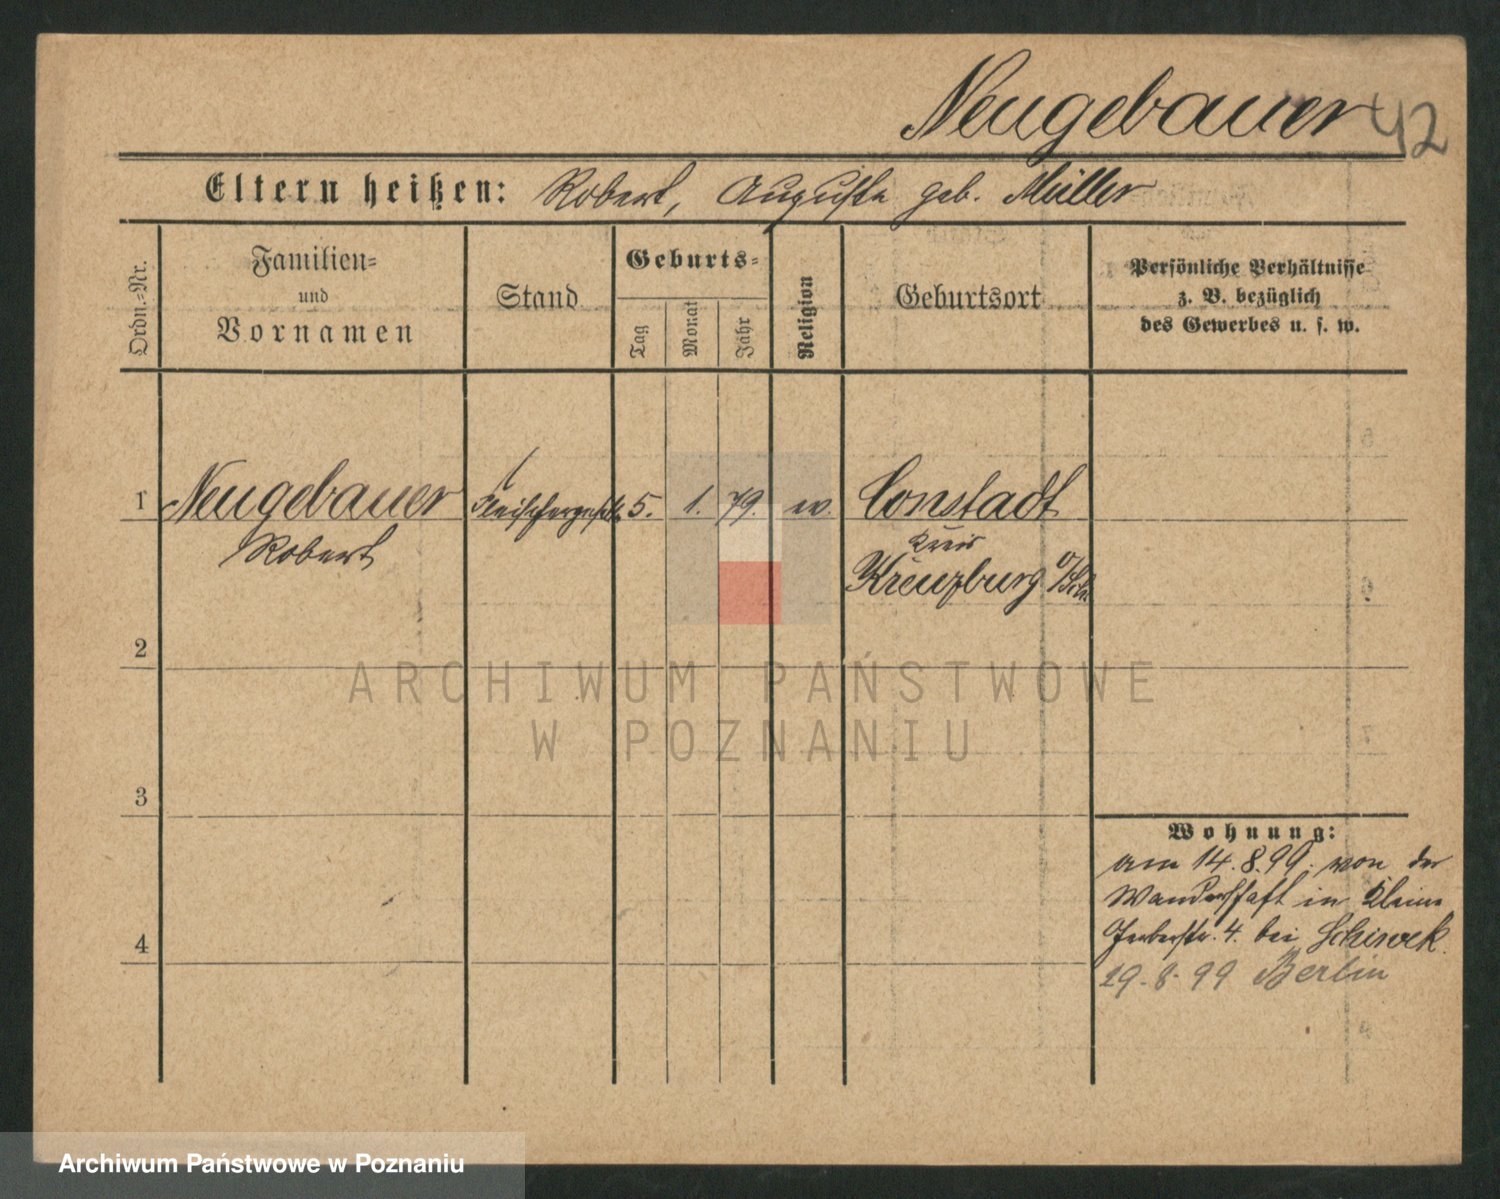 Neugebauer 42
Eltern heißen: Robert, Auguste geb. Müller
Ordn.=Nr.
Familien=
und
Vornamen
Stand
Geburts=
Tag
Monat
Jahr
Religion
Geburtsort
Persönliche Verhältnisse
z. B. bezüglich
des Gewerbes u. s. w.
1 Neugebauer Fleischergeselle 5. 1. 79. ev. Constadt
Robert Kreis
Kreuzburg O/Schl
2
ARCHIWUM PAŃSTWOWE
W POZNANIU
3
Wohnung:
am 14.8.99. von der
Wanderschaft in Kleine
Gerberstr. 4. bei Schiwek.
29.8.99 Berlin
4
Archiwum Państwowe w Poznaniu